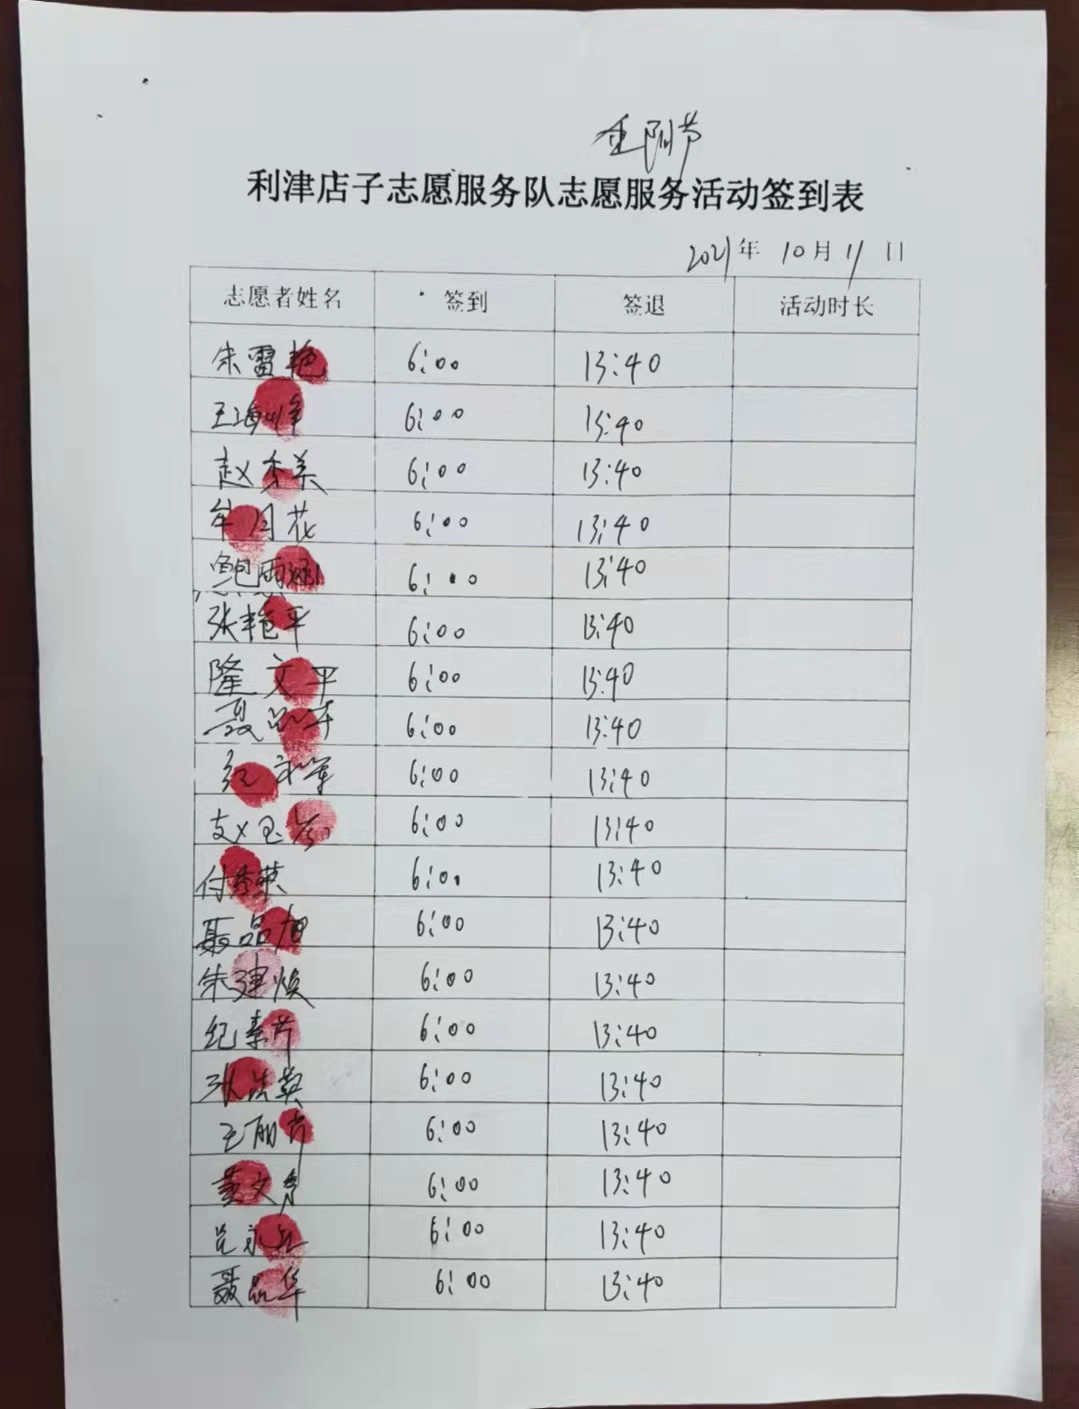 重阳节
利津店子志愿服务队志愿服务活动签到表
2021年 10月 11日
志愿者姓名 签到 签退 活动时长
朱雷艳 6:00 13:40
王海峰 6:00 13:40
赵秀美 6:00 13:40
牟月花 6:00 13:40
鲍雨涵 6:00 13:40
张艳平 6:00 13:40
隆文平 6:00 13:40
聂品 6:00 13:40
纪 6:00 13:40
赵玉 6:00 13:40
付秀荣 6:00 13:40
聂品旭 6:00 13:40
朱建焕 6:00 13:40
纪素芹 6:00 13:40
张 英 6:00 13:40
王丽芳 6:00 13:40
董文 6:00 13:40
永 6:00 13:40
聂品华 6:00 13:40